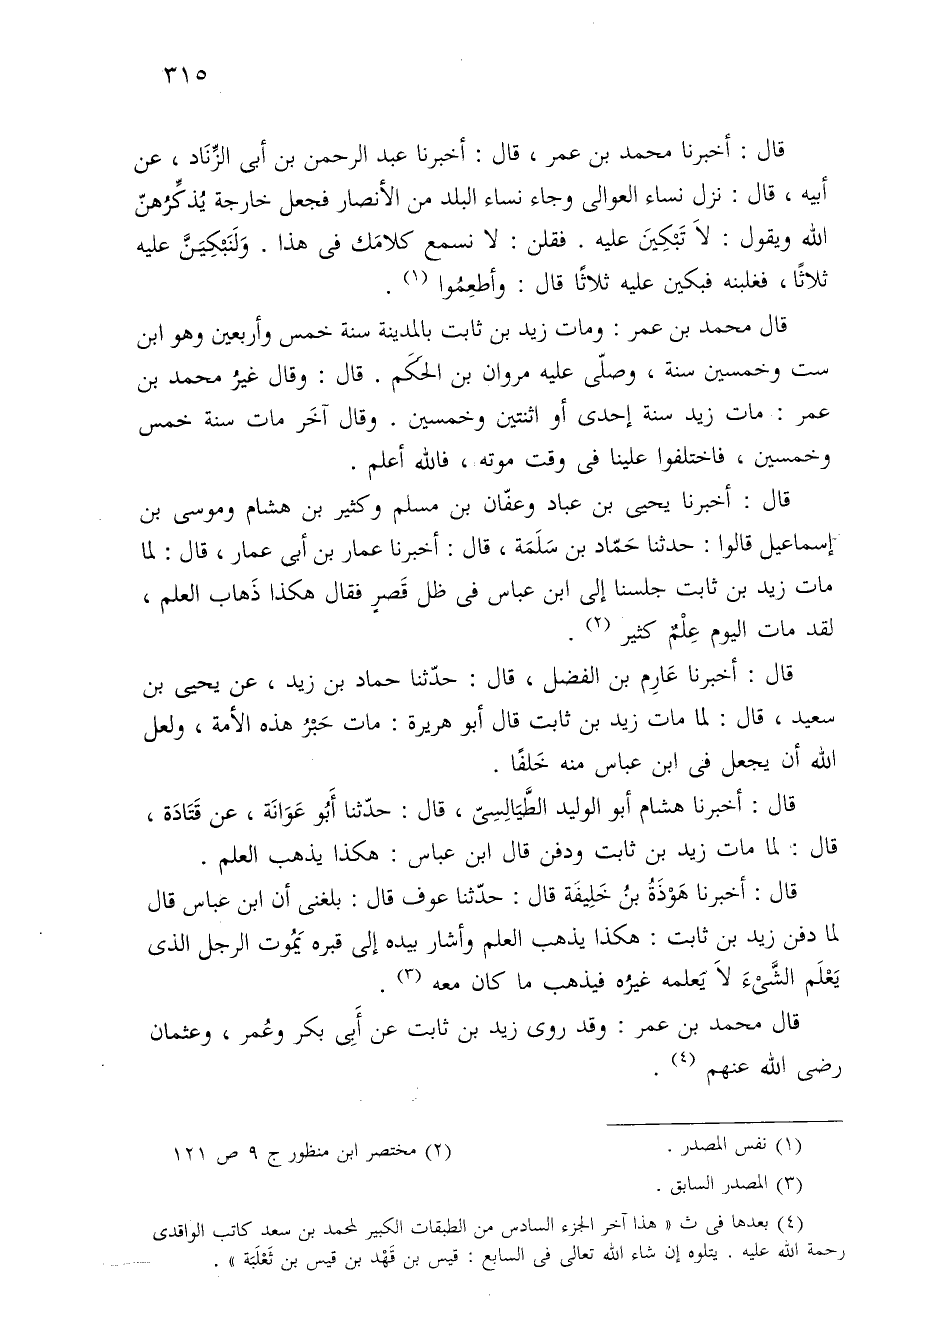 ٣١٥
قال : أخبرنا محمد بن عمر ، قال : أخبرنا عبد الرحمن بن أبى الزِّنَاد ، عن
أبيه ، قال : نزل نساء العوالى وجاء نساء البلد من الأنصار فجعل خارجة يُذكِّرُهنّ
الله ويقول : لاَ تَبْكِينَ عليه . فقلن : لا نسمع كلامَك فى هذا . وَلَنَبْكِيَنَّ عليه
ثلاثًا ، فغلبنه فبكين عليه ثلاثًا قال : وأطعِمُوا (١) .
قال محمد بن عمر : ومات زيد بن ثابت بالمدينة سنة خمس وأربعين وهو ابن
ست وخمسين سنة ، وصلّى عليه مروان بن الحَكَم . قال : وقال غيرُ محمد بن
عمر : مات زيد سنة إحدى أو اثنتين وخمسين . وقال آخَر مات سنة خمس
وخمسين ، فاختلفوا علينا فى وقت موته ، فالله أعلم .
قال : أخبرنا يحيى بن عباد وعفّان بن مسلم وكثير بن هشام وموسى بن
إسماعيل قالوا : حدثنا حَمّاد بن سَلَمَة ، قال : أخبرنا عمار بن أبى عمار ، قال : لما
مات زيد بن ثابت جلسنا إلى ابن عباس فى ظل قَصرٍ فقال هكذا ذَهاب العلم ،
لقد مات اليوم عِلْمٌ كثير (٢) .
قال : أخبرنا عَارِم بن الفضل ، قال : حدّثنا حماد بن زيد ، عن يحيى بن
سعيد ، قال : لما مات زيد بن ثابت قال أبو هريرة : مات حَبْرُ هذه الأمة ، ولعل
الله أن يجعل فى ابن عباس منه خَلفًا .
قال : أخبرنا هشام أبو الوليد الطَّيَالِسِىّ ، قال : حدّثنا أَبُو عَوَانَة ، عن قَتَادَة ،
قال : لما مات زيد بن ثابت ودفن قال ابن عباس : هكذا يذهب العلم .
قال : أخبرنا هَوْذَةُ بنُ خَلِيفَة قال : حدّثنا عوف قال : بلغنى أن ابن عباس قال
لما دفن زيد بن ثابت : هكذا يذهب العلم وأشار بيده إلى قبره يَمُوت الرجل الذى
يَعْلَم الشَّىْءَ لاَ يَعلمه غيرُه فيذهب ما كان معه (٣) .
قال محمد بن عمر : وقد روى زيد بن ثابت عن أَبِى بكر وعُمر ، وعثمان
رضى الله عنهم (٤) .
(١) نفس المصدر . (٢) مختصر ابن منظور ج ٩ ص ١٢١
(٣) المصدر السابق .
(٤) بعدها فى ث « هذا آخر الجزء السادس من الطبقات الكبير لمحمد بن سعد كاتب الواقدى
رحمة الله عليه . يتلوه إن شاء الله تعالى فى السابع : قيس بن قَهْد بن قيس بن ثَعْلَبَة » .